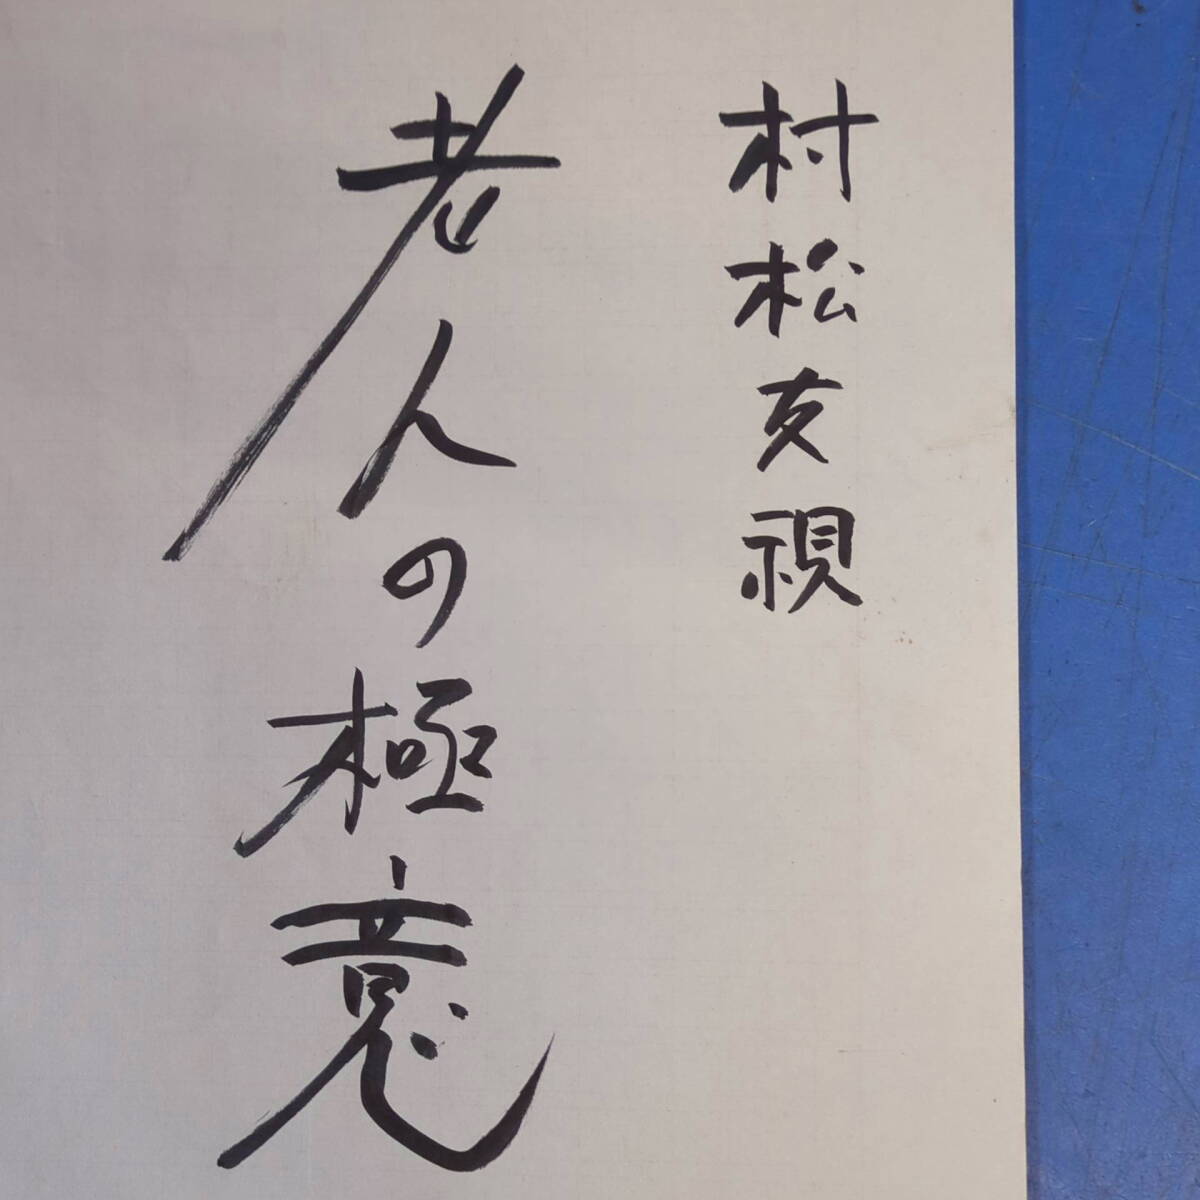 村松友視
老人の極意